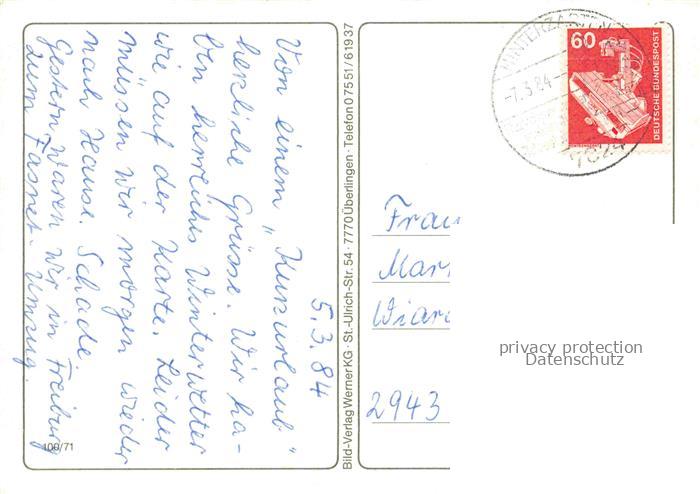 5.3.84
Von einem "Kurzurlaub"
herzliche Grüsse. Wir ha-
ben herrliches Winterwetter
wie auf der Karte. Leider
müssen wir morgen wieder
nach Hause. Schade.
Gestern waren wir in Freiburg
zum Fasnet-Umzug.
100/71
Bild-Verlag Werner KG · St.-Ulrich-Str. 54 · 7770 Überlingen · Telefon 0 75 51/6 19 37
HINTERZARTEN
-7.3.84-
7824
60
DEUTSCHE BUNDESPOST
Frau
Mar
Wiar
2943
privacy protection
Datenschutz